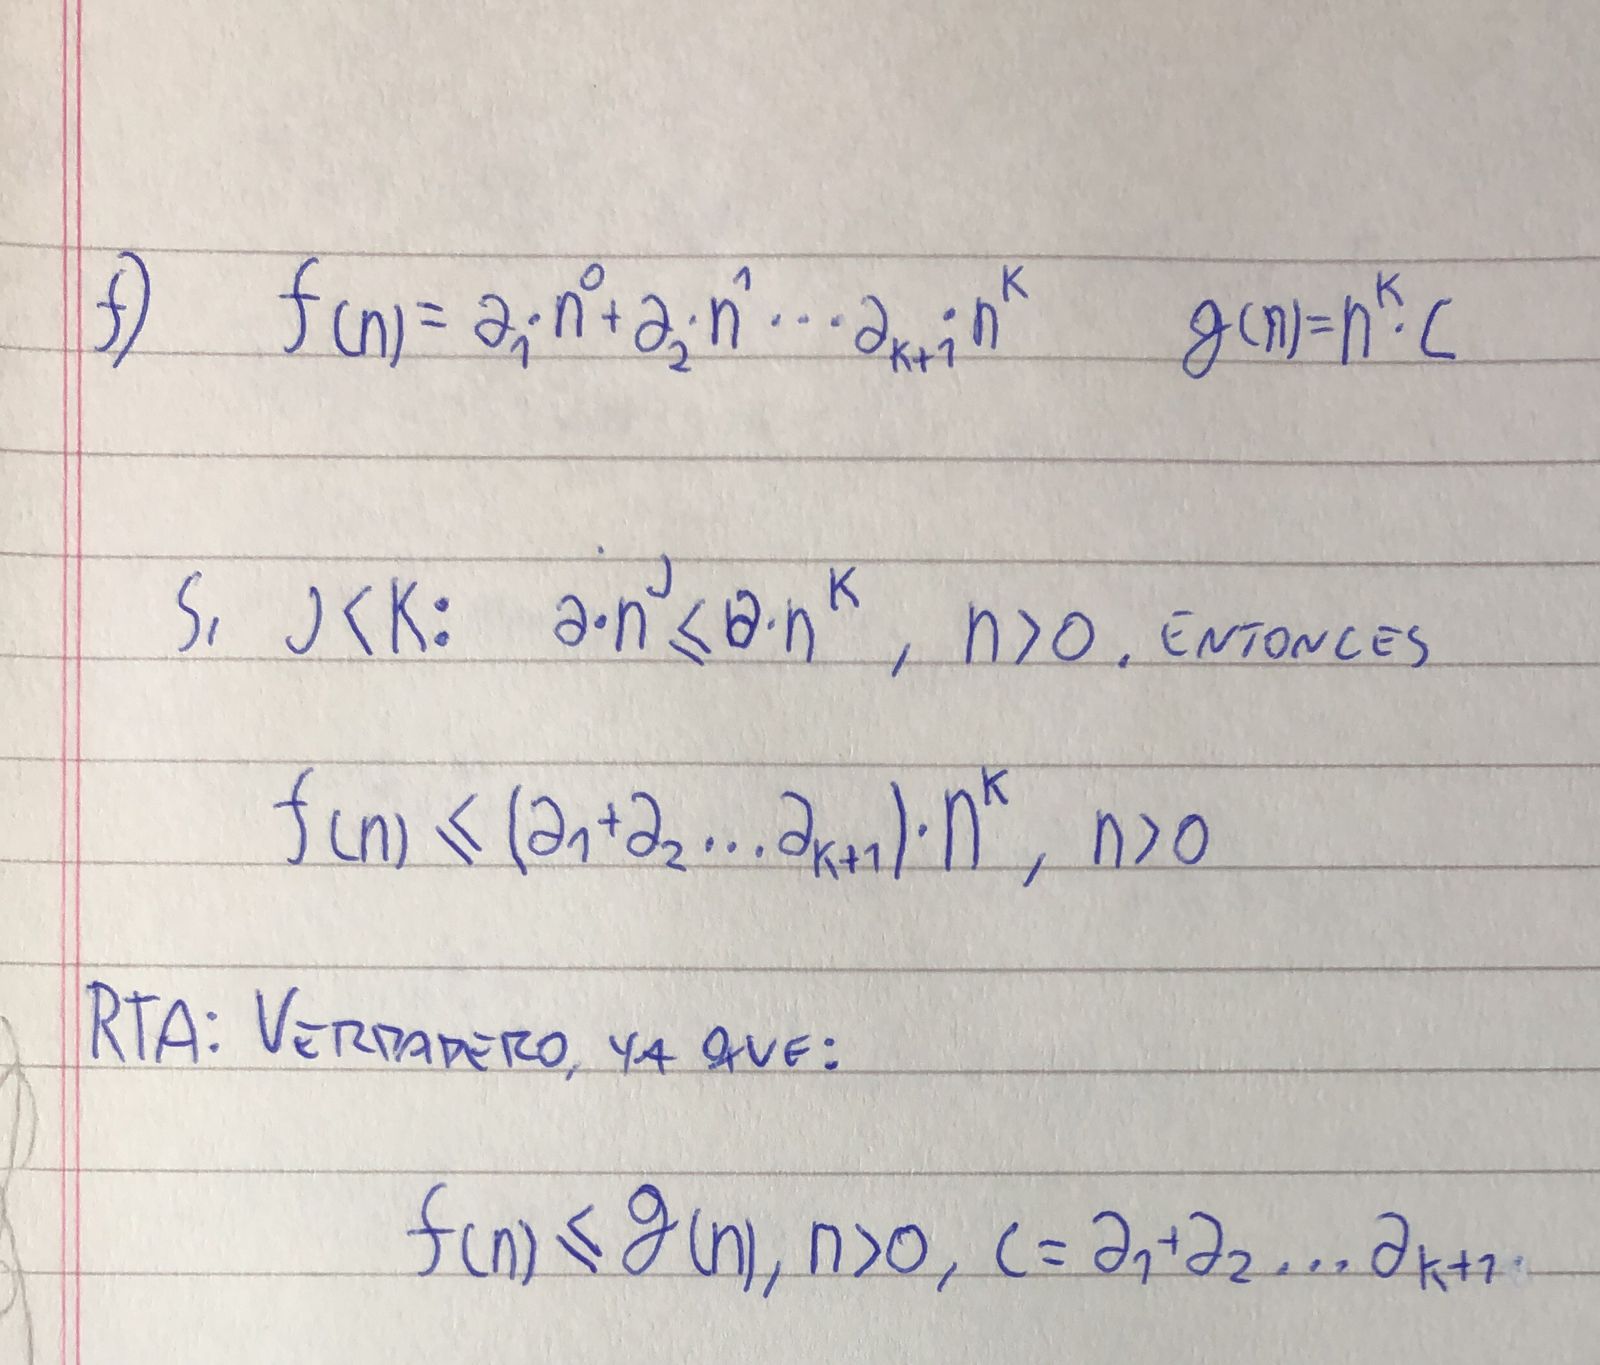 f) f(n) = a₁·n⁰ + a₂·n¹ ... aₖ₊₁·nᴷ g(n) = nᴷ·C
Si J<K: a·nᴶ ≤ a·nᴷ, n>0. ENTONCES
f(n) ≤ (a₁+a₂...aₖ₊₁)·nᴷ, n>0
RTA: VERDADERO, YA QUE:
f(n) ≤ g(n), n>0, C = a₁+a₂...aₖ₊₁.